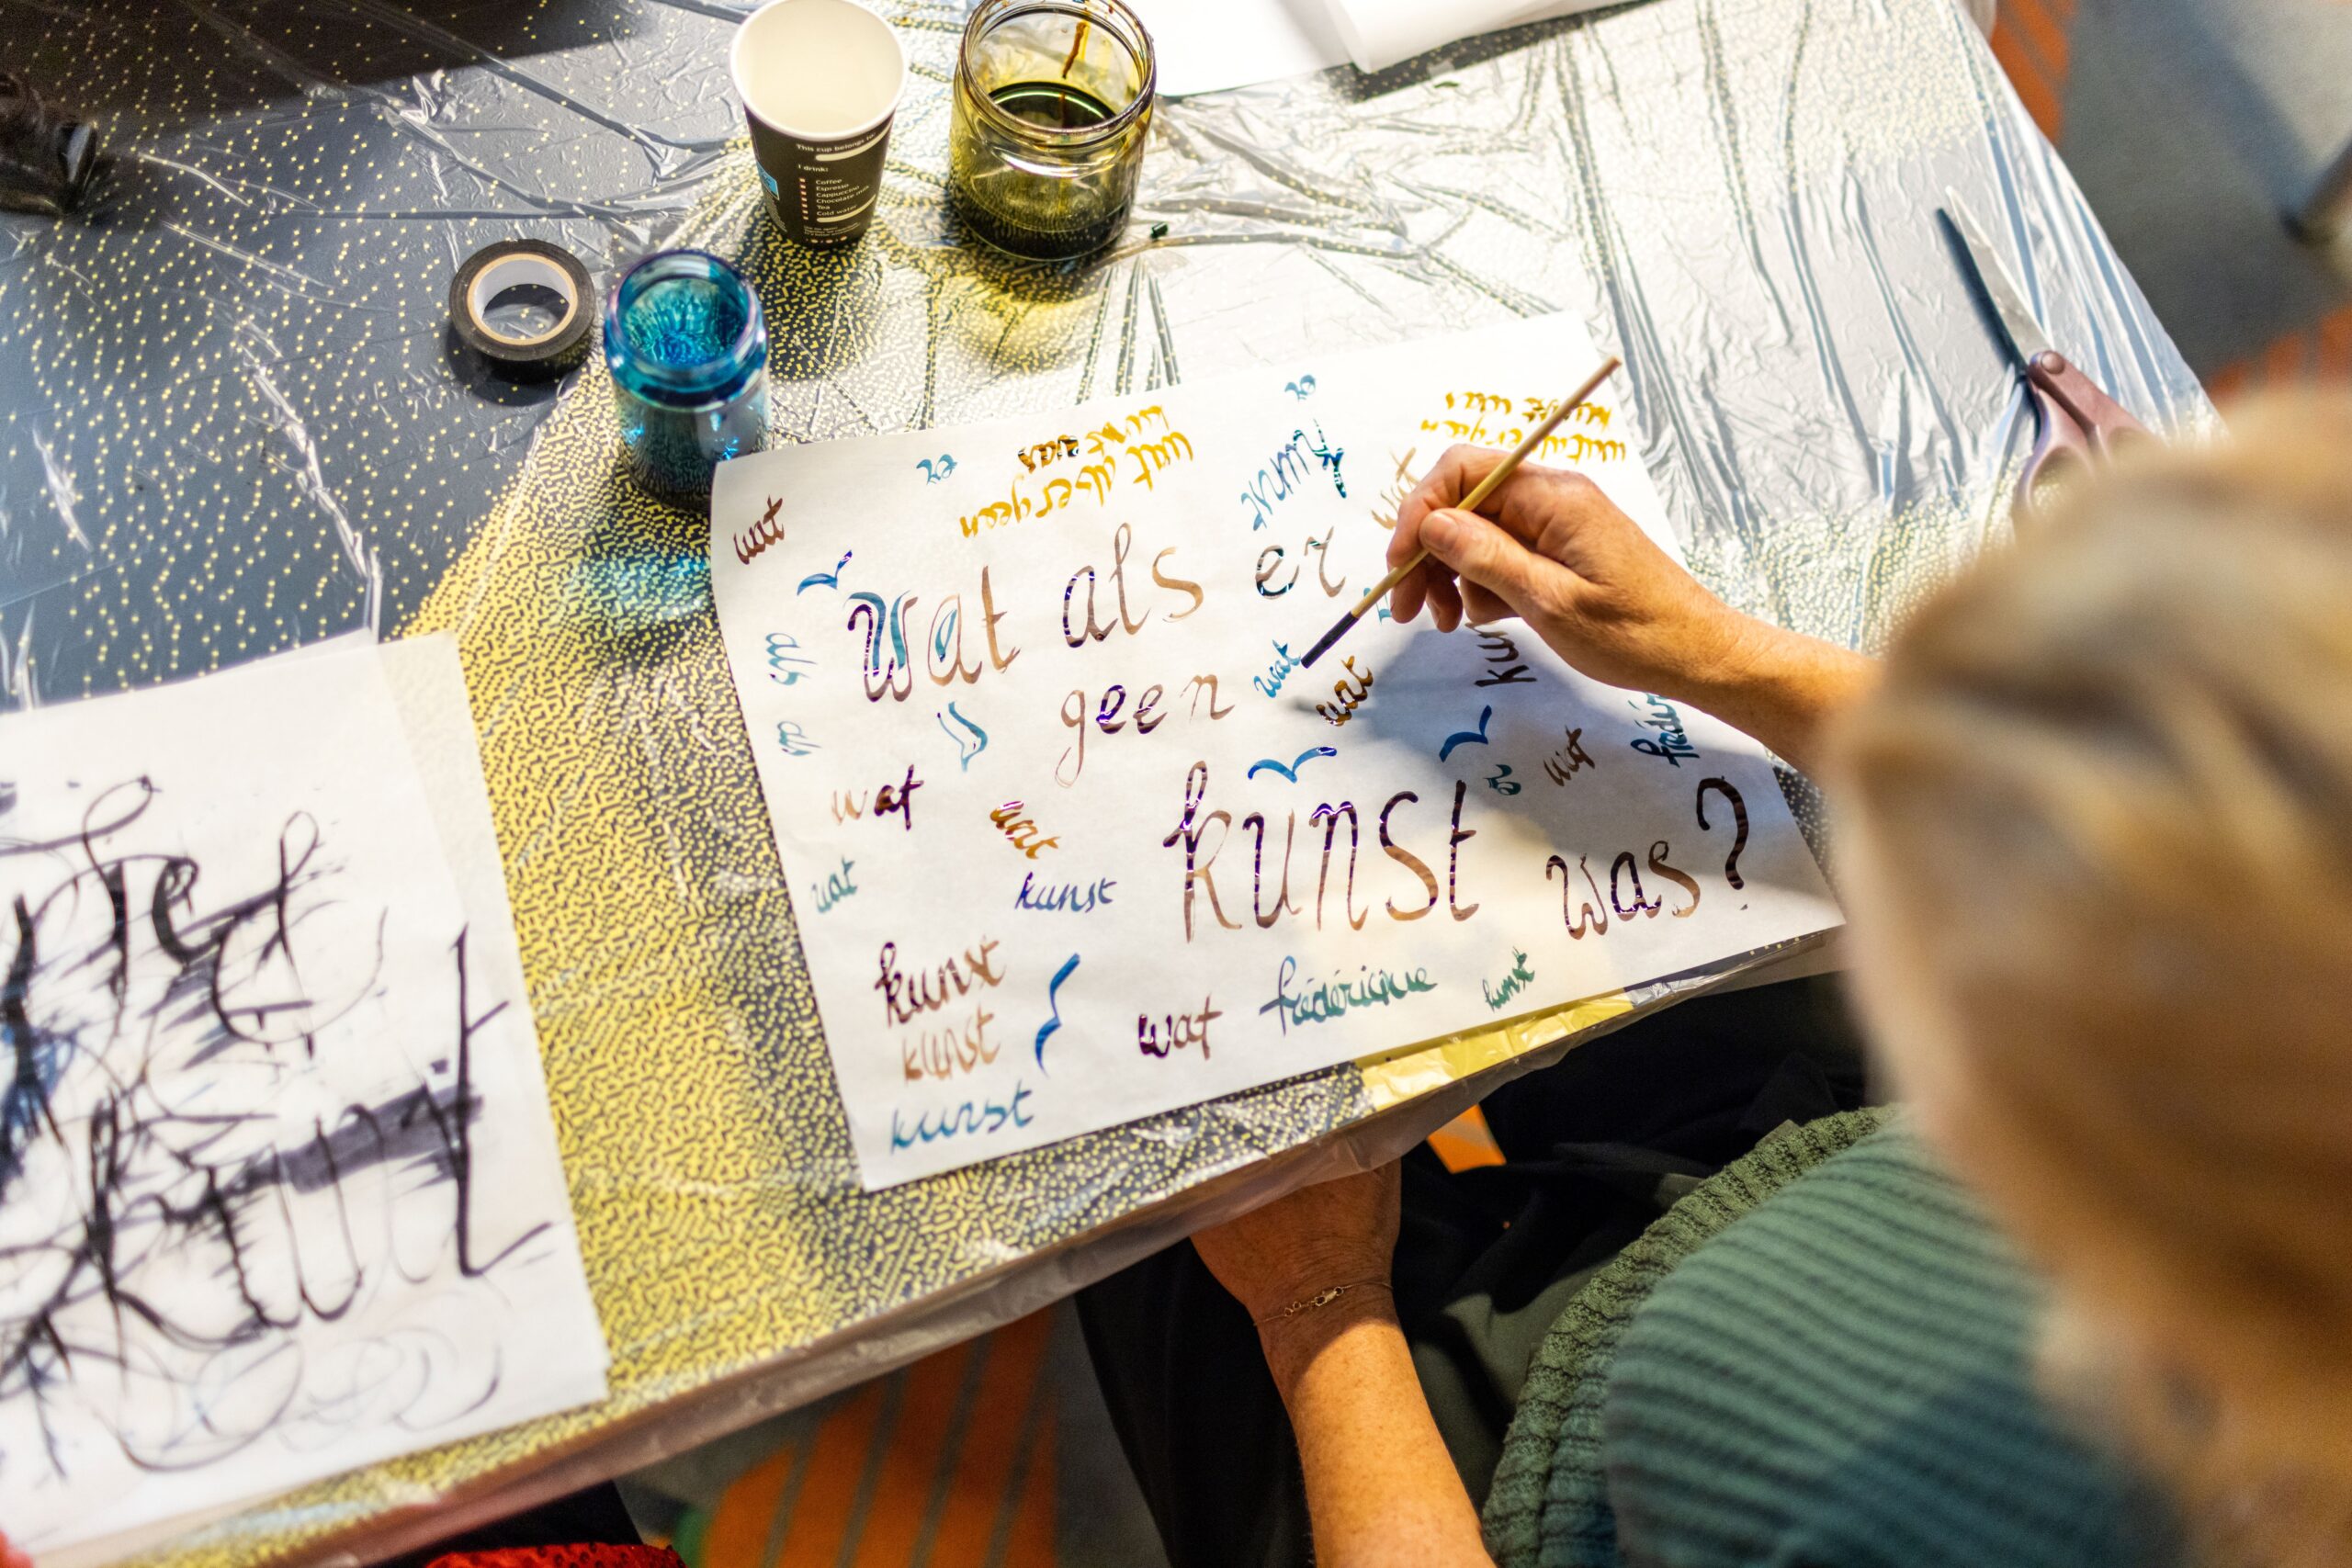 This cup belongs to:
I drink:
Coffee
Espresso
Cappuccino
Chocolate milk
Tea
Cold water
er
wat als er geen
kunst was
kunst
er
wat
wat
Wat als er
geen
wat
wat
als
als
wat
wat
kunst
er
wat
wat
kunst
was?
kunst
kunst
wat
frédérique
kunst
kunst
het
kunst